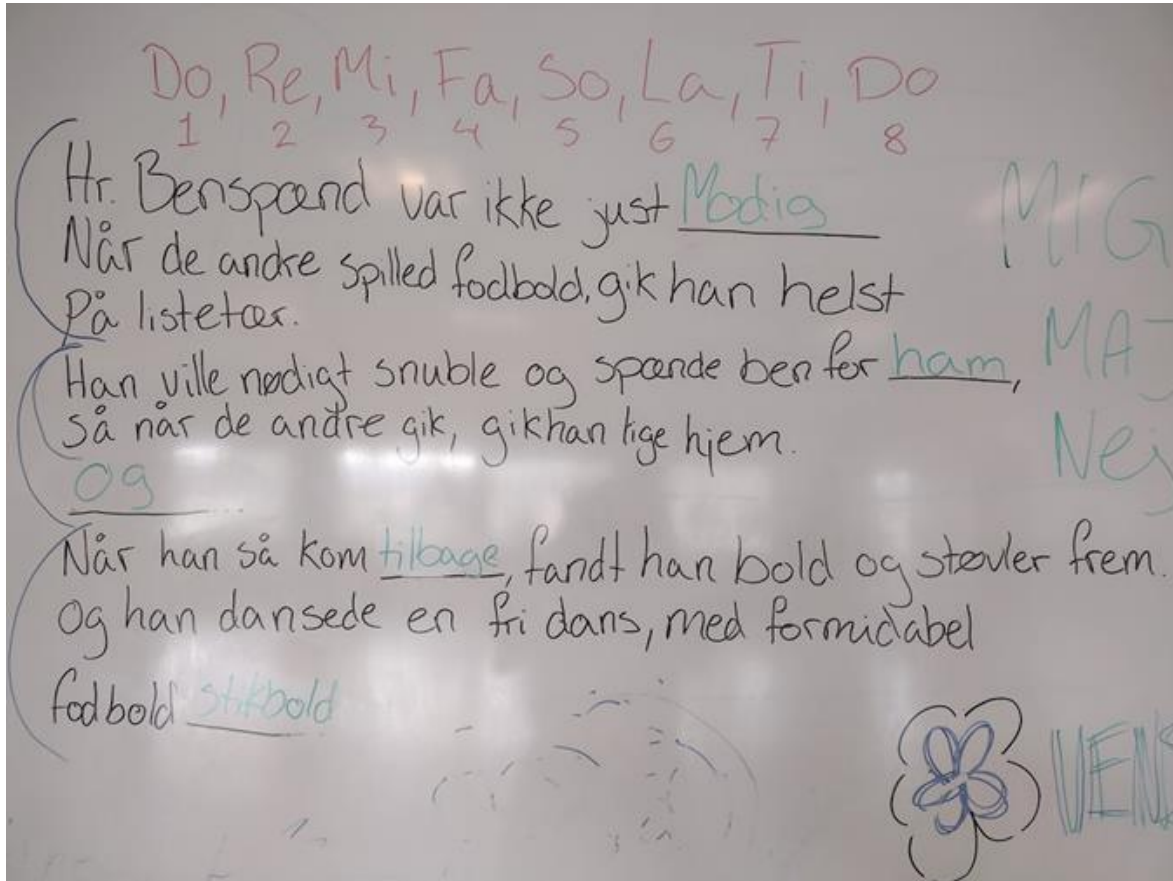 Do, Re, Mi, Fa, So, La, Ti, Do
1 2 3 4 5 6 7 8
Hr. Benspænd var ikke just Modig
Når de andre spilled fodbold, gik han helst
På listetær.
Han ville nødigt snuble og spænde ben for ham,
så når de andre gik, gik han lige hjem.
og
Når han så kom tilbage, fandt han bold og støvler frem.
Og han dansede en fri dans, med formidabel
fodbold stikbold
MIG
MAJ
Nej
VENS